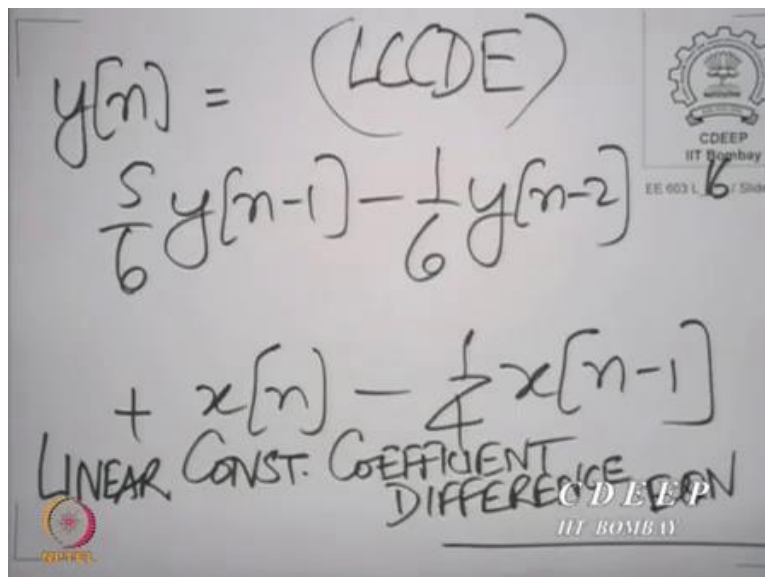 y[n] = (LCCDE)
5/6 y[n-1] - 1/6 y[n-2]
+ x[n] - 1/4 x[n-1]
LINEAR CONST. COEFFICIENT
DIFFERENCE EQN
CDEEP
IIT Bombay
EE 603 L / Slide
16
NPTEL
CDEEP
IIT BOMBAY